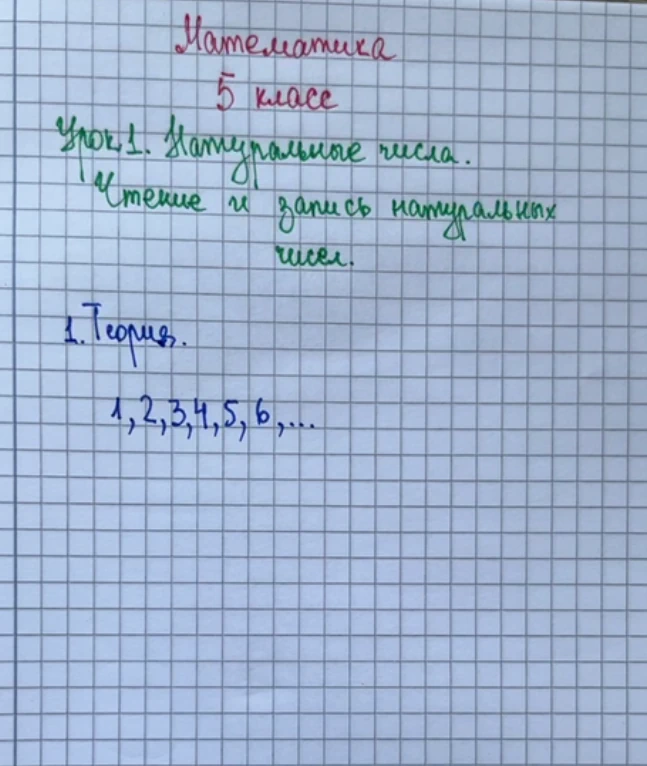 Математика
5 класс
Урок 1. Натуральные числа.
Чтение и запись натуральных
чисел.
1. Теория.
1, 2, 3, 4, 5, 6, ...